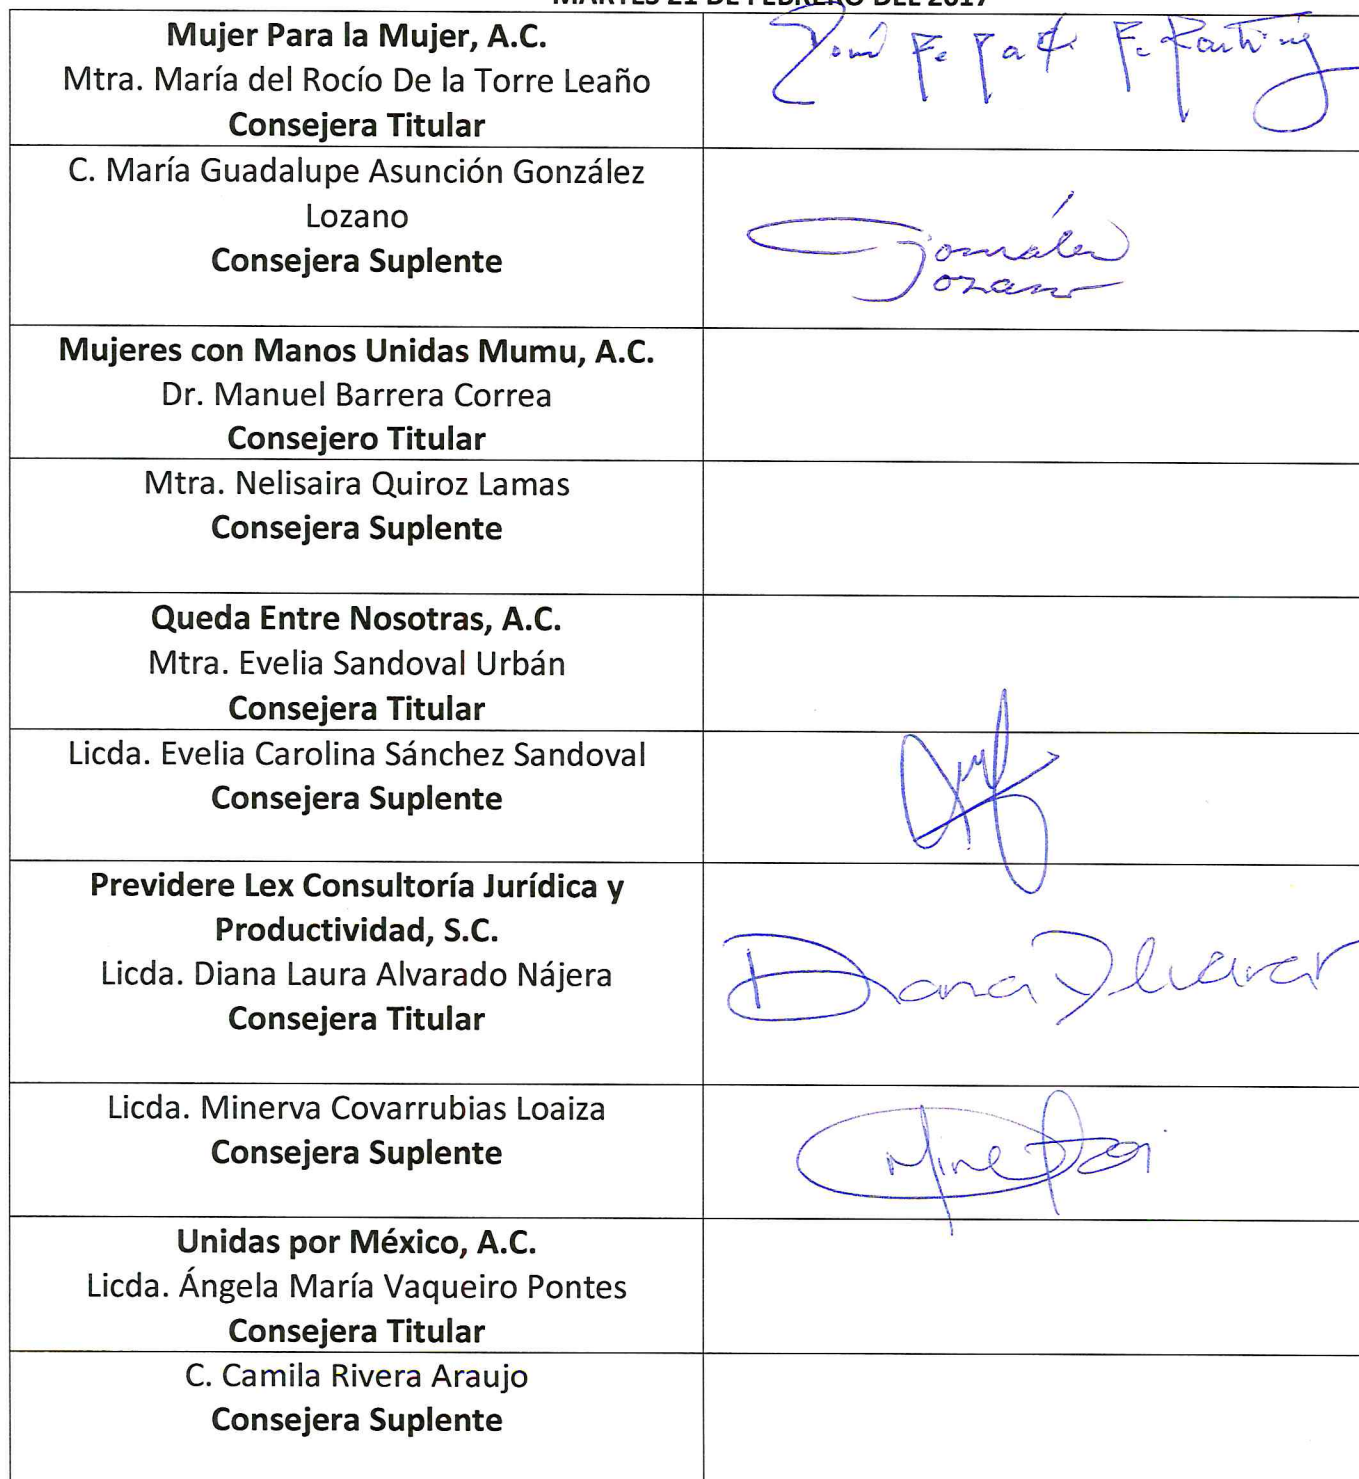 MARTES 21 DE FEBRERO DEL 2017
Mujer Para la Mujer, A.C.
Mtra. María del Rocío De la Torre Leaño
Consejera Titular
C. María Guadalupe Asunción González
Lozano
Consejera Suplente
González
Lozano
Mujeres con Manos Unidas Mumu, A.C.
Dr. Manuel Barrera Correa
Consejero Titular
Mtra. Nelisaira Quiroz Lamas
Consejera Suplente
Queda Entre Nosotras, A.C.
Mtra. Evelia Sandoval Urbán
Consejera Titular
Licda. Evelia Carolina Sánchez Sandoval
Consejera Suplente
Previdere Lex Consultoría Jurídica y
Productividad, S.C.
Licda. Diana Laura Alvarado Nájera
Consejera Titular
Diana Alvarar
Licda. Minerva Covarrubias Loaiza
Consejera Suplente
Unidas por México, A.C.
Licda. Ángela María Vaqueiro Pontes
Consejera Titular
C. Camila Rivera Araujo
Consejera Suplente